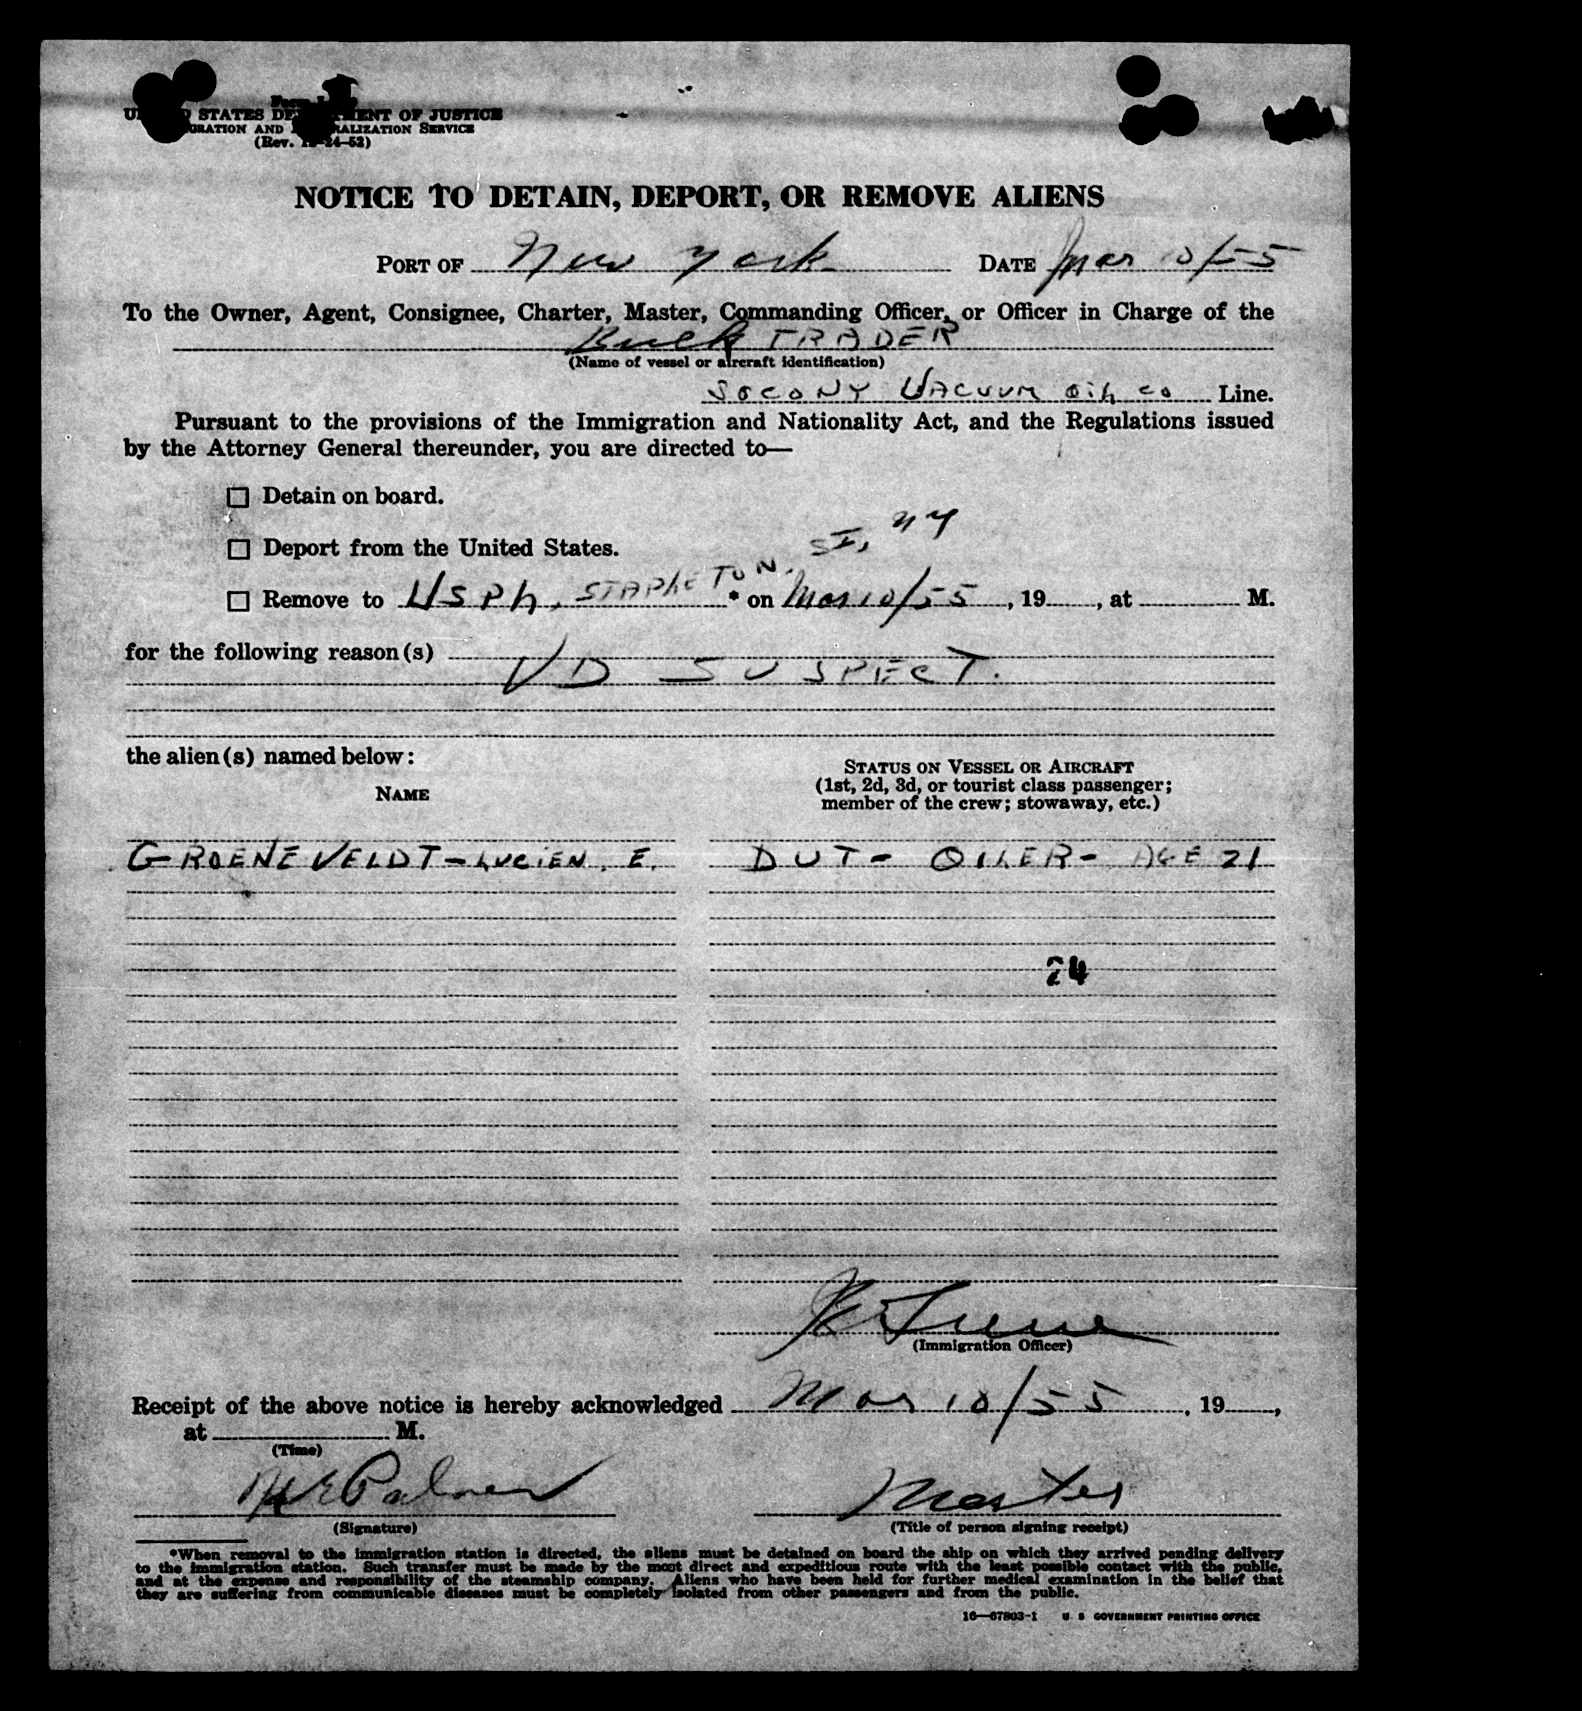 STATES DE MENT OF JUSTICE
GRATION AND RALIZATION SERVICE
(Rev. 12-24-52)
NOTICE TO DETAIN, DEPORT, OR REMOVE ALIENS
PORT OF New York DATE Mar 10/55
To the Owner, Agent, Consignee, Charter, Master, Commanding Officer, or Officer in Charge of the
TRADER
(Name of vessel or aircraft identification)
SOCONY VACUUM OIL CO Line.
Pursuant to the provisions of the Immigration and Nationality Act, and the Regulations issued
by the Attorney General thereunder, you are directed to—
☐ Detain on board.
☐ Deport from the United States.
☐ Remove to USPH, STAPLETON. SI, NY * on Mar 10/55, 19 , at M.
for the following reason(s)
VD SUSPECT.
the alien(s) named below:
NAME
STATUS ON VESSEL OR AIRCRAFT
(1st, 2d, 3d, or tourist class passenger;
member of the crew; stowaway, etc.)
GROENEVELDT-LUCIEN. E. DUT- OILER- AGE 21
24
(Immigration Officer)
Receipt of the above notice is hereby acknowledged Mar 10/55, 19 ,
at M.
(Time)
Palmer Master
(Signature) (Title of person signing receipt)
*When removal to the immigration station is directed, the aliens must be detained on board the ship on which they arrived pending delivery
to the immigration station. Such transfer must be made by the most direct and expeditious route with the least possible contact with the public,
and at the expense and responsibility of the steamship company. Aliens who have been held for further medical examination in the belief that
they are suffering from communicable diseases must be completely isolated from other passengers and from the public.
16—67803-1 U. S. GOVERNMENT PRINTING OFFICE